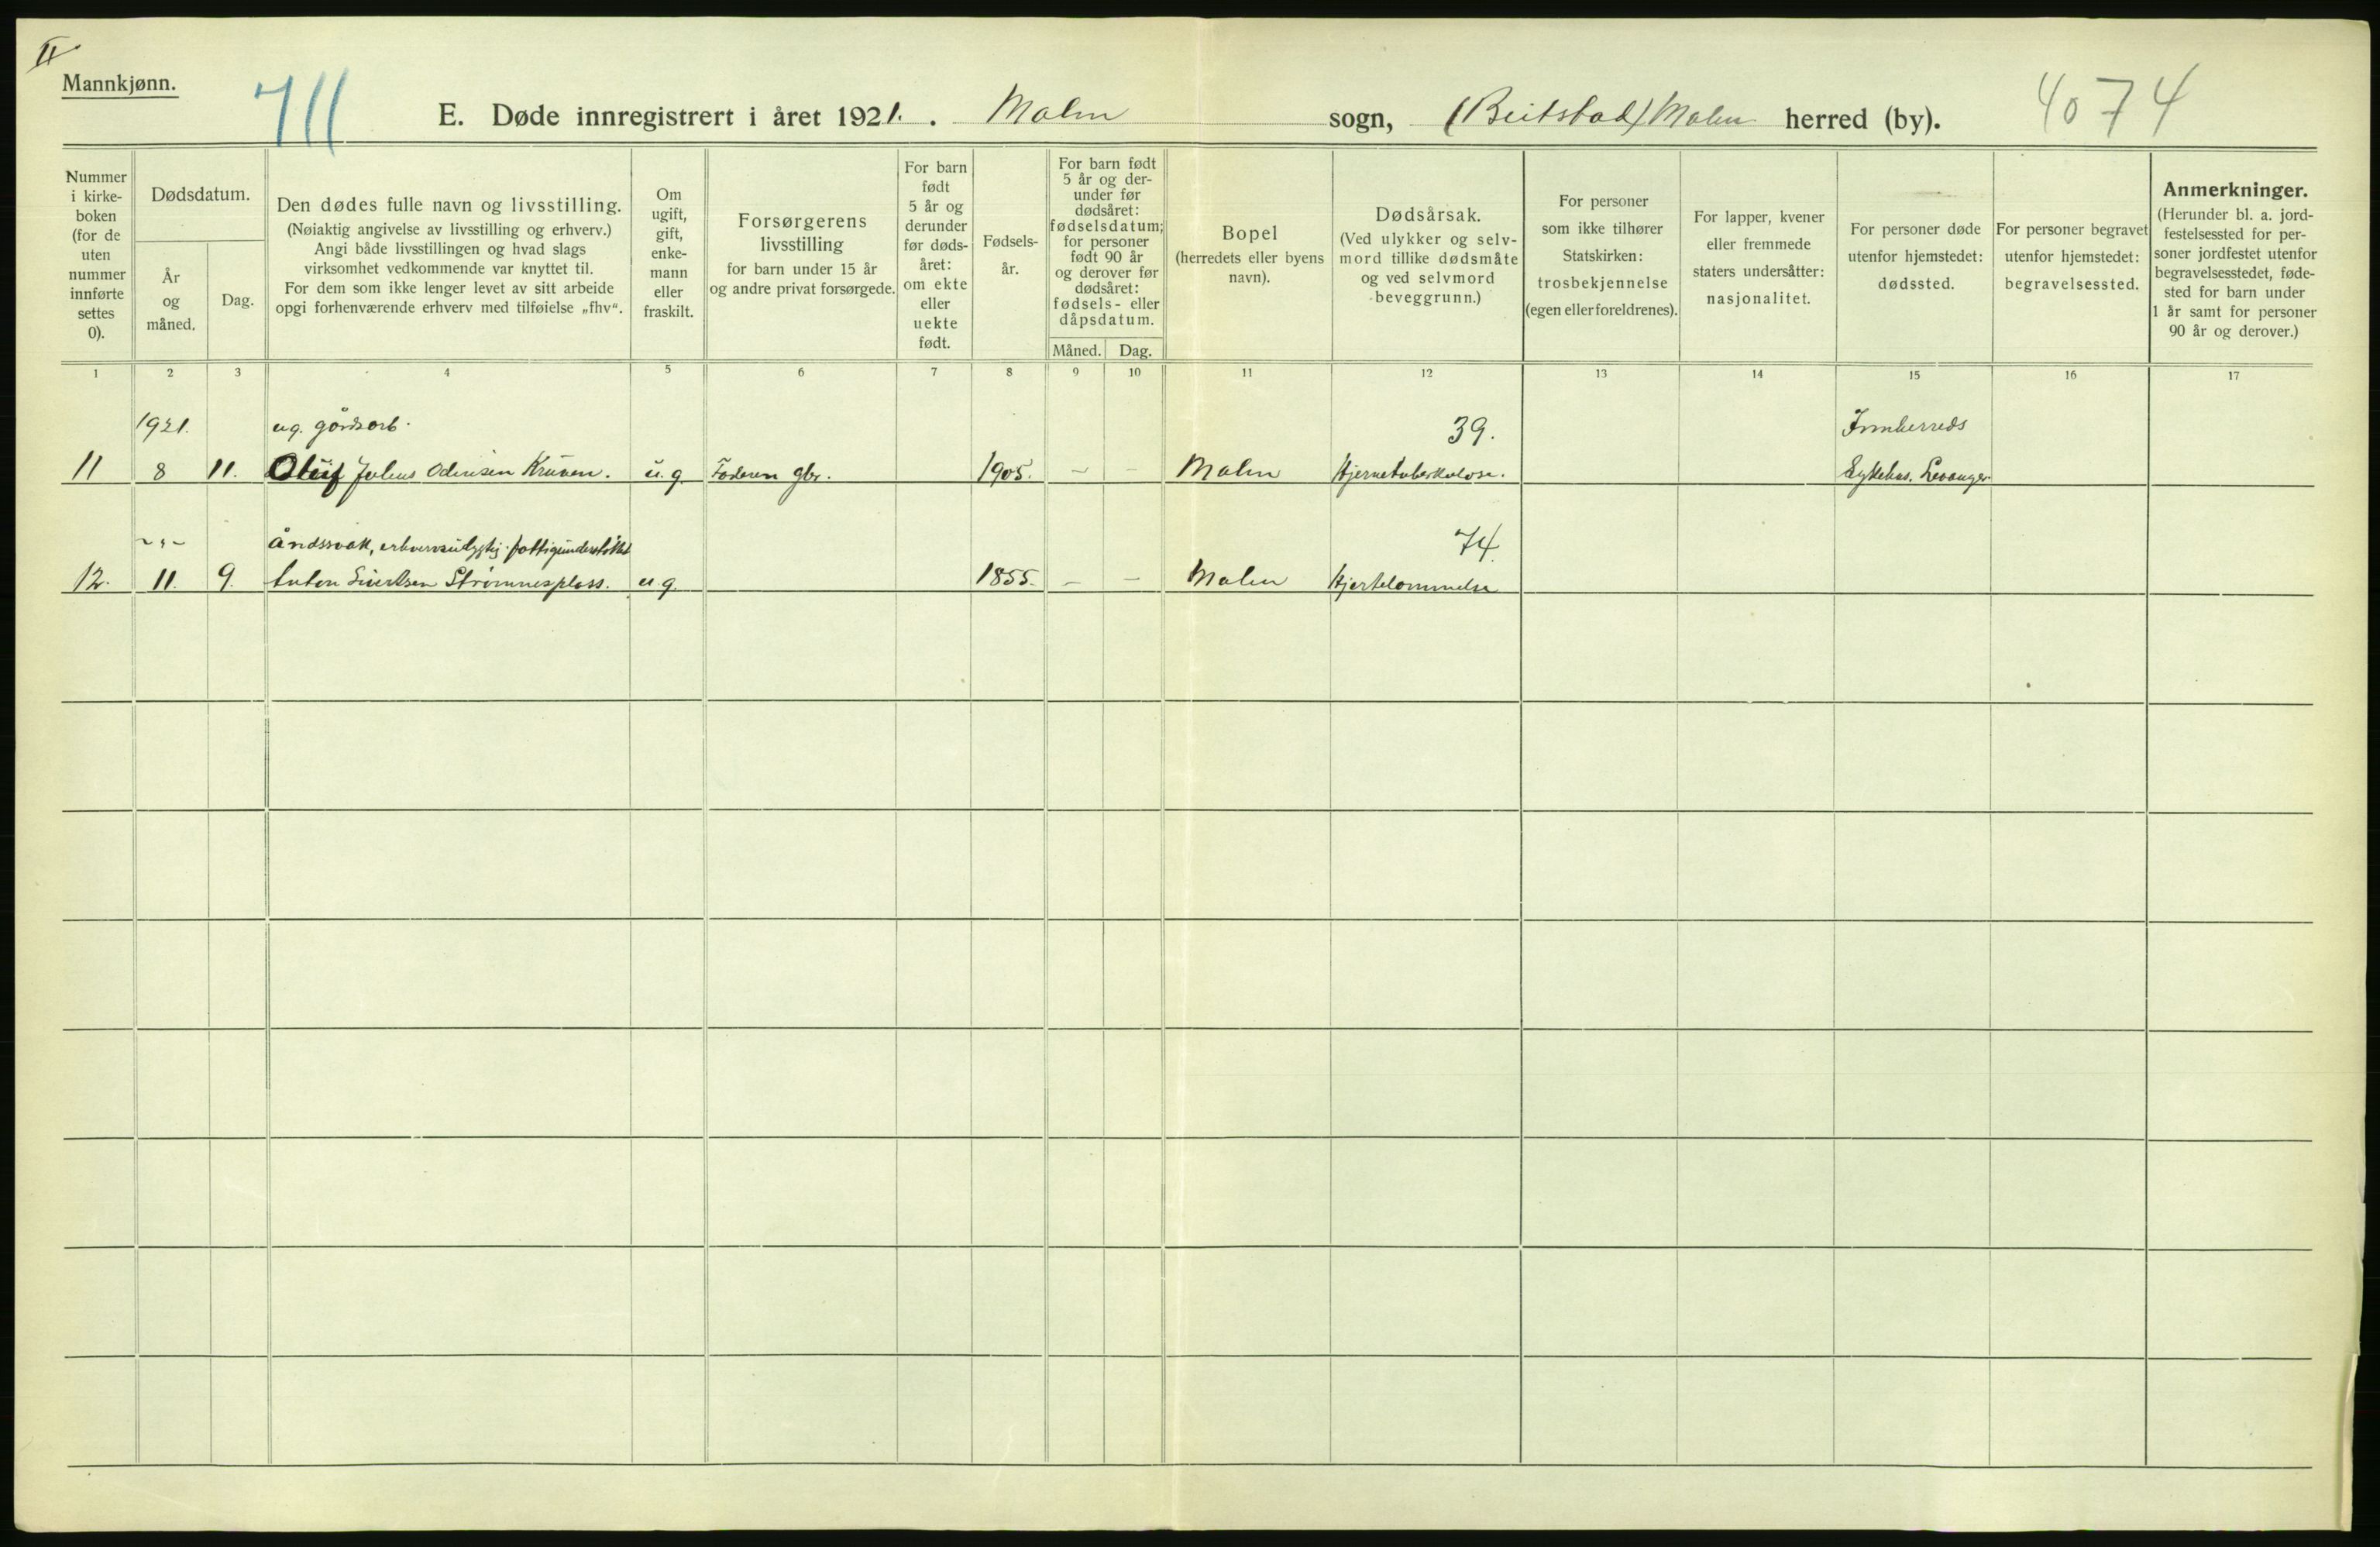 II
Mannkjønn.
711
E. Døde innregistrert i året 1921. . Malm sogn, (Beitstad) Malm herred (by).
4074
Nummer i kirke- boken (for de uten nummer innførte settes 0).
Dødsdatum.
År og måned.
Dag.
Den dødes fulle navn og livsstilling.
(Nøiaktig angivelse av livsstilling og erhverv.)
Angi både livsstillingen og hvad slags
virksomhet vedkommende var knyttet til.
For dem som ikke lenger levet av sitt arbeide
opgi forhenværende erhverv med tilføielse „fhv".
Om ugift, gift, enke- mann eller fraskilt.
Forsørgerens
livsstilling
for barn under 15 år
og andre privat forsørgede.
For barn født 5 år og derunder før døds- året: om ekte eller uekte født.
Fødsels- år.
For barn født 5 år og der- under før dødsåret: fødselsdatum; for personer født 90 år og derover før dødsåret: fødsels- eller dåpsdatum.
Måned. Dag.
Bopel
(herredets eller byens
navn).
Dødsårsak.
(Ved ulykker og selv-
mord tillike dødsmåte
og ved selvmord
beveggrunn.)
For personer
som ikke tilhører
Statskirken:
trosbekjennelse
(egen eller foreldrenes).
For lapper, kvener
eller fremmede
staters undersåtter:
nasjonalitet.
For personer døde
utenfor hjemstedet:
dødssted.
For personer begravet
utenfor hjemstedet:
begravelsessted.
Anmerkninger.
(Herunder bl. a. jord-
festelsessted for per-
soner jordfestet utenfor
begravelsesstedet, føde-
sted for barn under
1 år samt for personer
90 år og derover.)
1 2 3 4 5 6 7 8 9 10 11 12 13 14 15 16 17
1921. ug. gårdsarb. 39. Innherreds
11 8 11. Oluf Julius Odinsen Kruven. u. g. Faderen gbr. 1905. – – Malm Hjernetuberkulose. Sykehus. Levanger
– " – Åndssvak, erhvervsudygtig. fattigunderstøttet 74.
12. 11. 9. Anton Sivertsen Strømnesplass. u. g. 1855. – – Malm Hjertelammelse